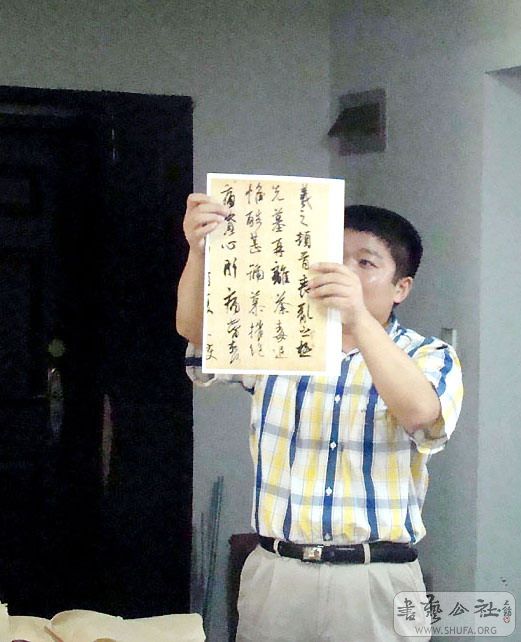 羲之頓首喪亂之極
先墓再離荼毒追
惟酷甚號慕摧絶
痛貫心肝痛當奈
書藝公社
WWW.SHUFA.ORG